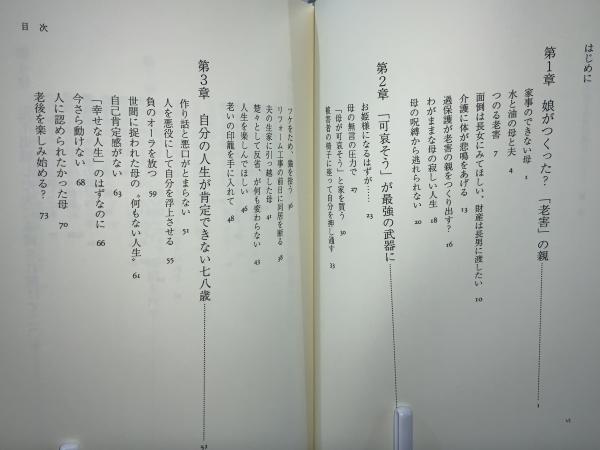 はじめに
第1章 娘がつくった？「老害」の親 1
家事のできない母 1
水と油の母と夫 4
つのる老害 7
面倒は長女にみてほしい、財産は長男に渡したい 10
介護に体が悲鳴をあげる 13
過保護が老害の親をつくり出す？ 16
わがままな母の寂しい人生 18
母の呪縛から逃れられない 20
第2章 「可哀そう」が最強の武器に
お姫様になるはずが…… 23
母の無言の圧力で 27
「母が可哀そう」と家を買う 30
被害者の椅子に座って自分を押し通す 33
vi
目次
フケをため、鬱を拾う 36
リフォーム工事の前日に同居を断る 38
夫の生家に引っ越した母 41
楚々として反省、が何も変わらない 43
人生を楽しんでほしい 46
老いの印籠を手に入れて 48
第3章 自分の人生が肯定できない七八歳 51
作り話と悪口がとまらない 51
人を悪役にして自分を浮上させる 55
負のオーラを放つ 59
世間に捉われた母の〝何もない人生〟 61
自己肯定感がない 63
「幸せな人生」のはずなのに 66
今さら動けない 68
人に認められたかった母 70
老後を楽しみ始める？ 73